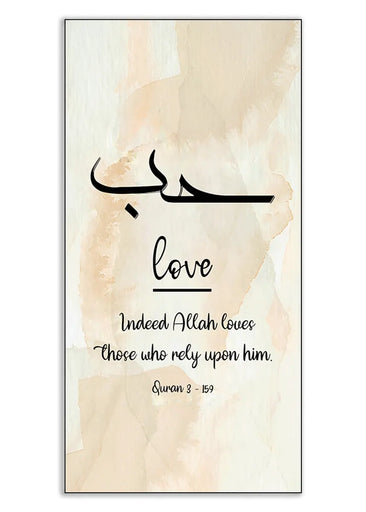 حب
love
Indeed Allah loves
those who rely upon him.
Quran 3 - 159